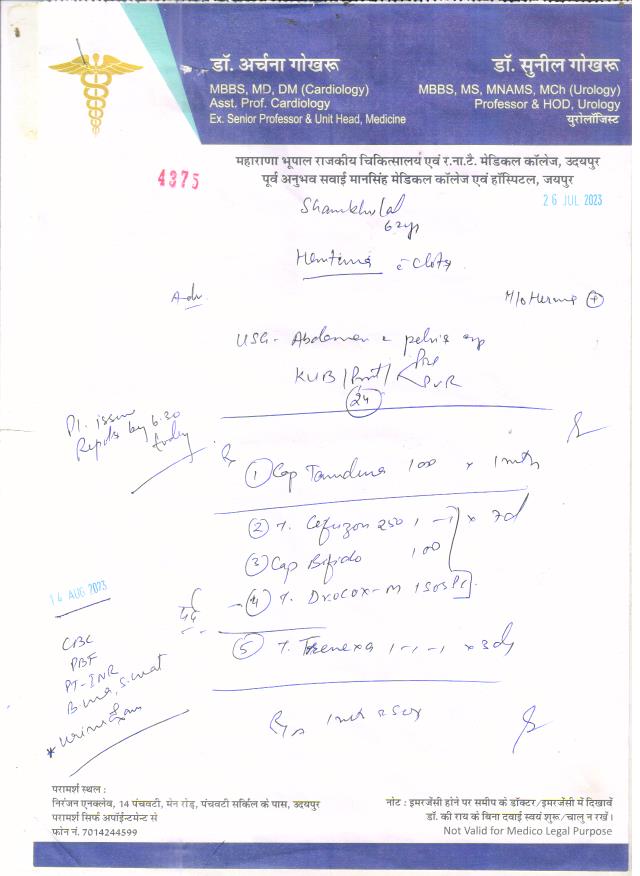 डॉ. अर्चना गोखरू
MBBS, MD, DM (Cardiology)
Asst. Prof. Cardiology
Ex. Senior Professor & Unit Head, Medicine
डॉ. सुनील गोखरू
MBBS, MS, MNAMS, MCh (Urology)
Professor & HOD, Urology
युरोलॉजिस्ट
महाराणा भूपाल राजकीय चिकित्सालयं एवं र.ना.टै. मेडिकल कॉलेज, उदयपुर
पूर्व अनुभव सवाई मानसिंह मेडिकल कॉलेज एवं हॉस्पिटल, जयपुर
4375
26 JUL 2023
62yr
c Clots
Adv
USG - Abdomen & pelvis
KUB / Prost / Pre
PVR
24
Pl. issue
Reports by 6.30
today
Rx
① Cap 100 x 1 mth
② T. 250 1 - 1 x 7d
③ Cap Bifido 100
दर्द - ④ T. Drocox-M 1 SOS
⑤ T. Trenexa 1-1-1 x 3dy
14 AUG 2023
CBC
PBF
PT-INR
B. urea, S. creat
* urine Exam
परामर्श स्थल :
निरंजन एनक्लेव, 14 पंचवटी, मेन रोड़, पंचवटी सर्किल के पास, उदयपुर
परामर्श सिर्फ अपॉइन्टमेन्ट से
फोन नं. 7014244599
नोट : इमरजेंसी होने पर समीप के डॉक्टर/इमरजेंसी में दिखावें
डॉ. की राय के बिना दवाई स्वयं शुरू/चालु न रखें।
Not Valid for Medico Legal Purpose